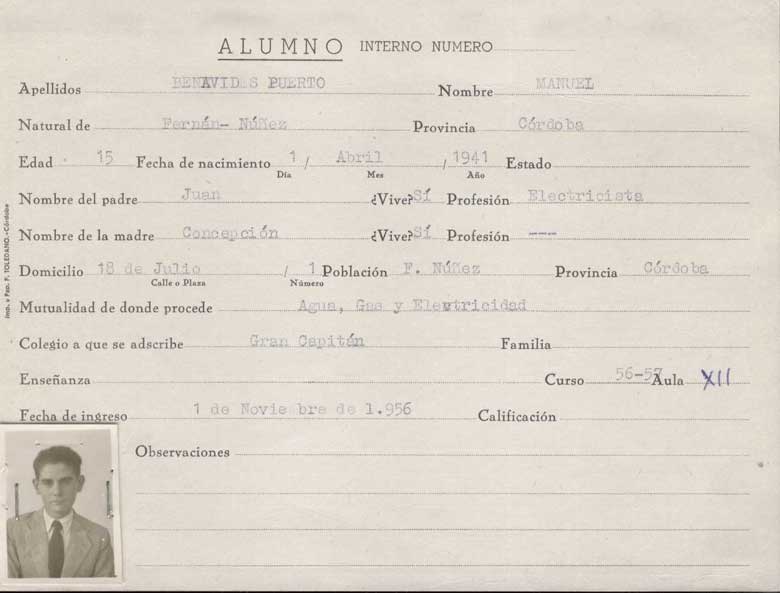 ALUMNO INTERNO NUMERO
Apellidos BENAVIDES PUERTO Nombre MANUEL
Natural de Fernán- Núñez Provincia Córdoba
Edad 15 Fecha de nacimiento 1 / Abril / 1941 Estado
Día Mes Año
Nombre del padre Juan ¿Vive? Sí Profesión Electricista
Nombre de la madre Concepción ¿Vive? Sí Profesión ---
Domicilio 18 de Julio / 1 Población F. Núñez Provincia Córdoba
Calle o Plaza Número
Mutualidad de donde procede Agua, Gas y Electricidad
Colegio a que se adscribe Gran Capitán Familia
Enseñanza Curso 56-57 Aula XII
Fecha de ingreso 1 de Noviembre de 1.956 Calificación
Observaciones
Imp. y Pap. F. TOLEDANO.-Córdoba